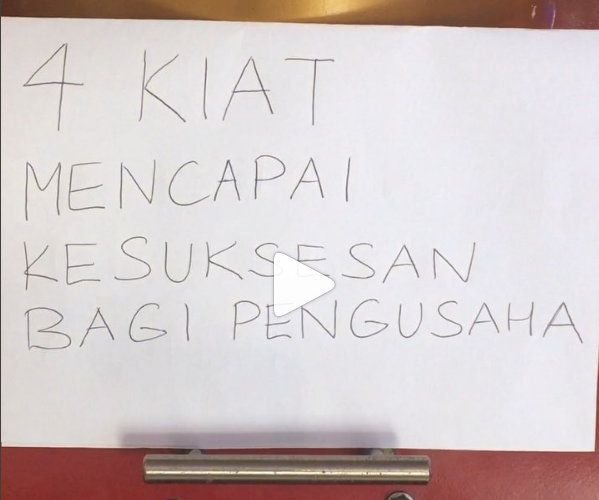 4 KIAT
MENCAPAI
KESUKSESAN
BAGI PENGUSAHA